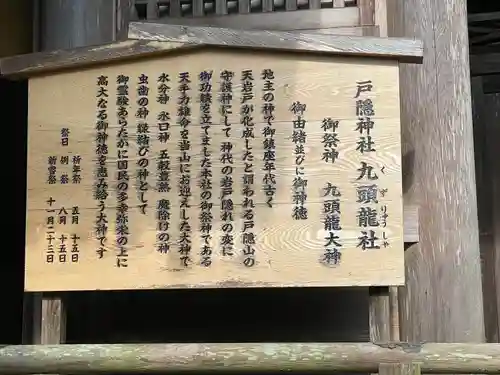 戸隠神社 九頭龍社
くずりゅうしゃ
御祭神 九頭龍大神
御由緒並びに御神徳
地主の神で御鎮座年代古く
天岩戸が化成したと謂われる戸隠山の
守護神にして 神代の岩戸隠れの変に
御功績を立てました本社の御祭神である
天手力雄命を当山にお迎えした大神で
水分神 水口神 五穀豊穣 魔除けの神
虫歯の神 縁結びの神として
御霊験あらたかに国民の多御弥栄の上に
高大なる御神徳を恵み給う大神です
祭日 祈年祭 五月十五日
例祭 八月十五日
新嘗祭 十一月二十三日